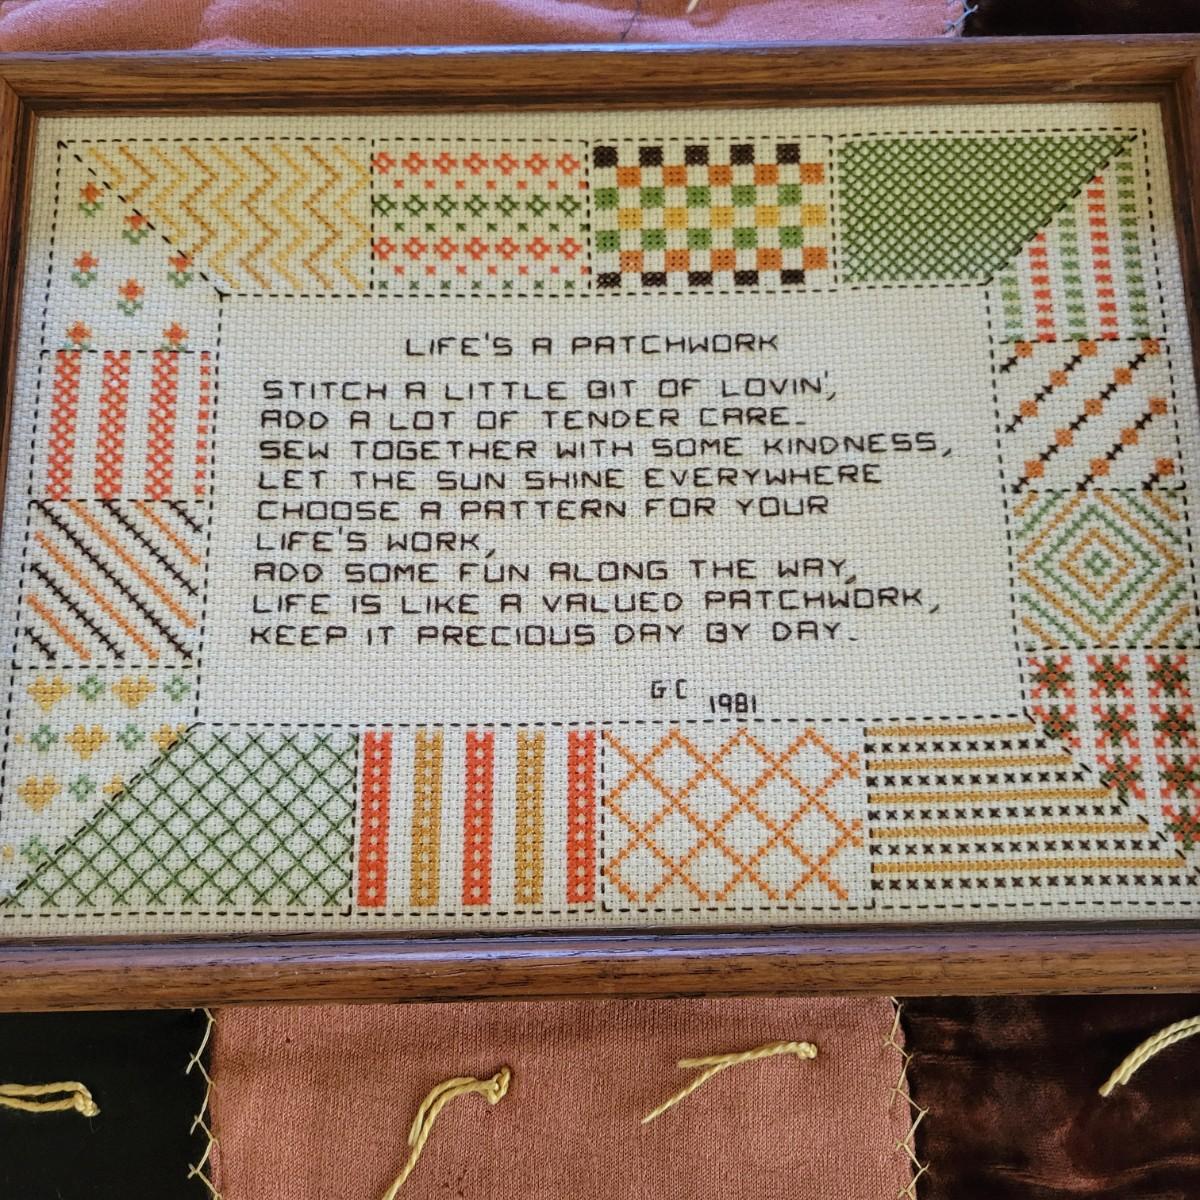 LIFE'S A PATCHWORK
STITCH A LITTLE BIT OF LOVIN',
ADD A LOT OF TENDER CARE.
SEW TOGETHER WITH SOME KINDNESS,
LET THE SUN SHINE EVERYWHERE
CHOOSE A PATTERN FOR YOUR
LIFE'S WORK,
ADD SOME FUN ALONG THE WAY,
LIFE IS LIKE A VALUED PATCHWORK,
KEEP IT PRECIOUS DAY BY DAY.
GC 1981